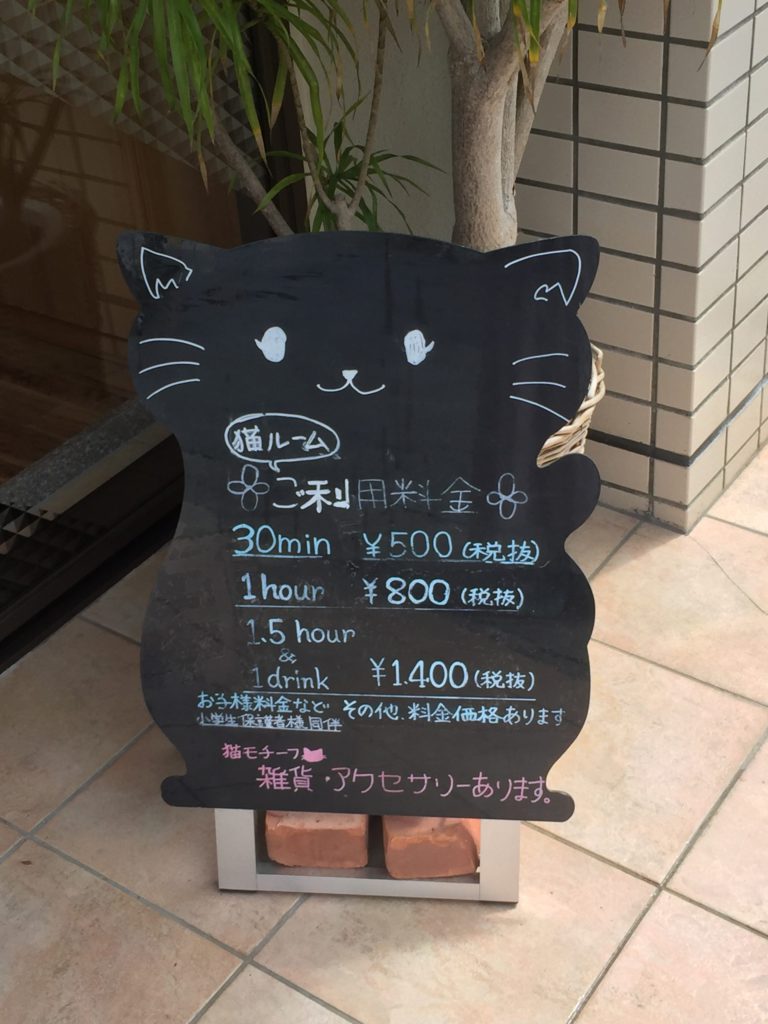 猫ルーム
ご利用料金
30min ¥500(税抜)
1hour ¥800(税抜)
1.5 hour
&
1drink ¥1.400(税抜)
お子様料金など その他、料金価格あります
小学生保護者様同伴
猫モチーフ
雑貨・アクセサリーあります。